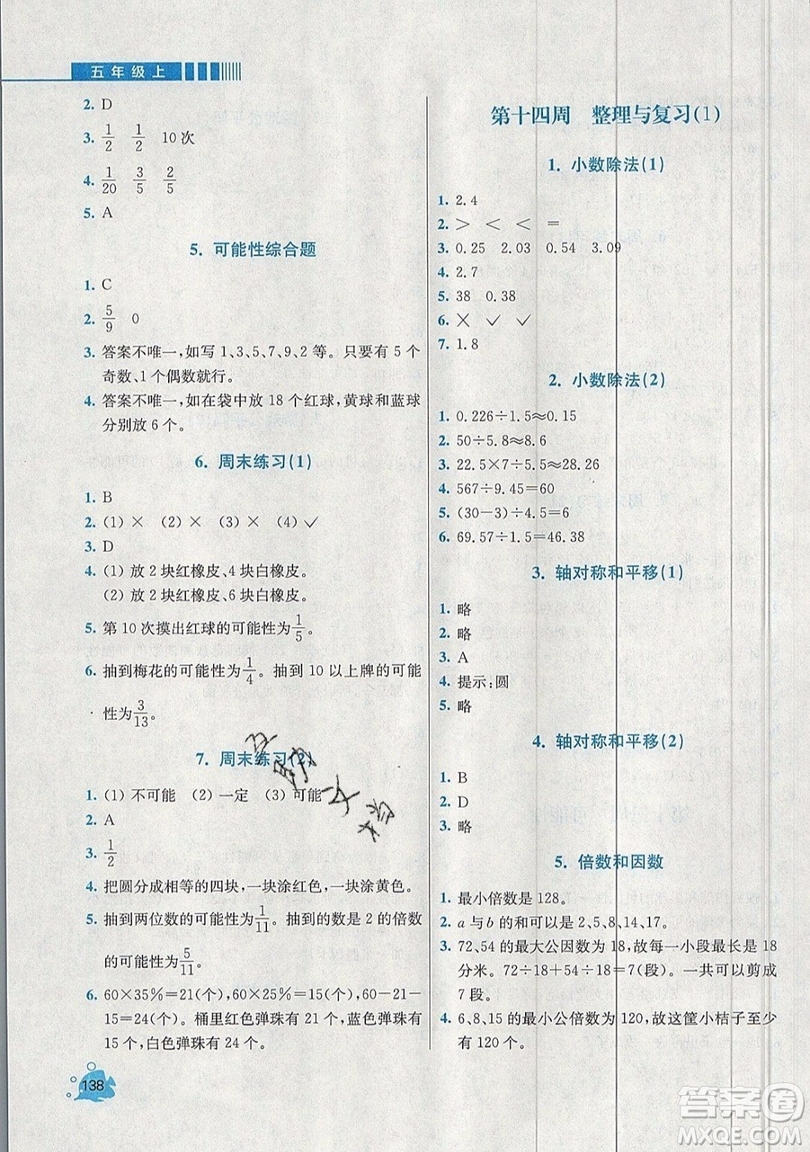 五年级上
2. D
3. 1/2 1/2 10次
4. 1/20 3/5 2/5
5. A
5. 可能性综合题
1. C
2. 5/9 0
3. 答案不唯一,如写1、3、5、7、9、2等。只要有5个
奇数、1个偶数就行。
4. 答案不唯一,如在袋中放18个红球,黄球和蓝球
分别放6个。
6. 周末练习(1)
1. B
2. (1) × (2) × (3) × (4) ✓
3. D
4. (1) 放2块红橡皮、4块白橡皮。
(2) 放2块红橡皮、6块白橡皮。
5. 第10次摸出红球的可能性为1/5。
6. 抽到梅花的可能性为1/4。抽到10以上牌的可能
性为3/13。
7. 周末练习(2)
1. (1) 不可能 (2) 一定 (3) 可能
2. A
3. 1/2
4. 把圆分成相等的四块,一块涂红色,一块涂黄色。
5. 抽到两位数的可能性为1/11。抽到的数是2的倍数
的可能性为5/11。
6. 60×35%=21(个),60×25%=15(个),60−21
−15=24(个)。桶里红色弹珠有21个,蓝色弹珠有15个,
白色弹珠有24个。
138
第十四周 整理与复习(1)
1. 小数除法(1)
1. 2.4
2. > < < =
3. 0.25 2.03 0.54 3.09
4. 2.7
5. 38 0.38
6. × ✓ ✓
7. 1.8
2. 小数除法(2)
1. 0.226÷1.5≈0.15
2. 50÷5.8≈8.6
3. 22.5×7÷1.5=105
4. 567÷9−10.5÷3.5=60
5. (30−3)÷4.5=6
6. 69.57÷1.5=46.38
3. 轴对称和平移(1)
1. 略
2. 略
3. A
4. 提示:圆
5. 略
4. 轴对称和平移(2)
1. B
2. D
3. 略
5. 倍数和因数
1. 最小倍数是128。
2. a与b的和可以是2、5、8、14、17。
3. 72、54的最大公因数为18,故每一小段最长是18
分米。72÷18+54÷18=7(段)。一共可以剪成
7段。
4. 6、8、15的最小公倍数为120,故这筐小桔子至少
有120个。
答案圈
MXQE.COM